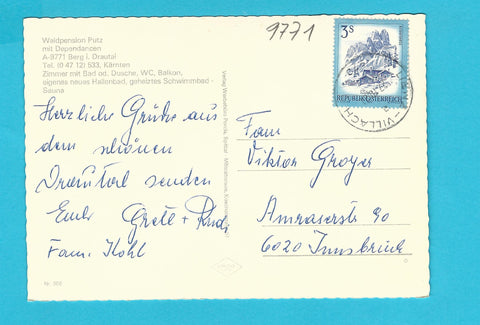 Waldpension Putz
mit Dependancen
A-9771 Berg i. Drautal
Tel. (0 47 12) 533, Kärnten
Zimmer mit Bad od. Dusche, WC, Balkon,
eigenes neues Hallenbad, geheiztes Schwimmbad -
Sauna
Herzliche Grüße aus
dem schönen
Drautal senden
Euch Grete + Rudi
Fam. Kohl
Nr. 302
9771
3S
REPUBLIK ÖSTERREICH
VILLACH
Fam
Viktor Groyer
Amraserstr 90
6020 Innsbruck